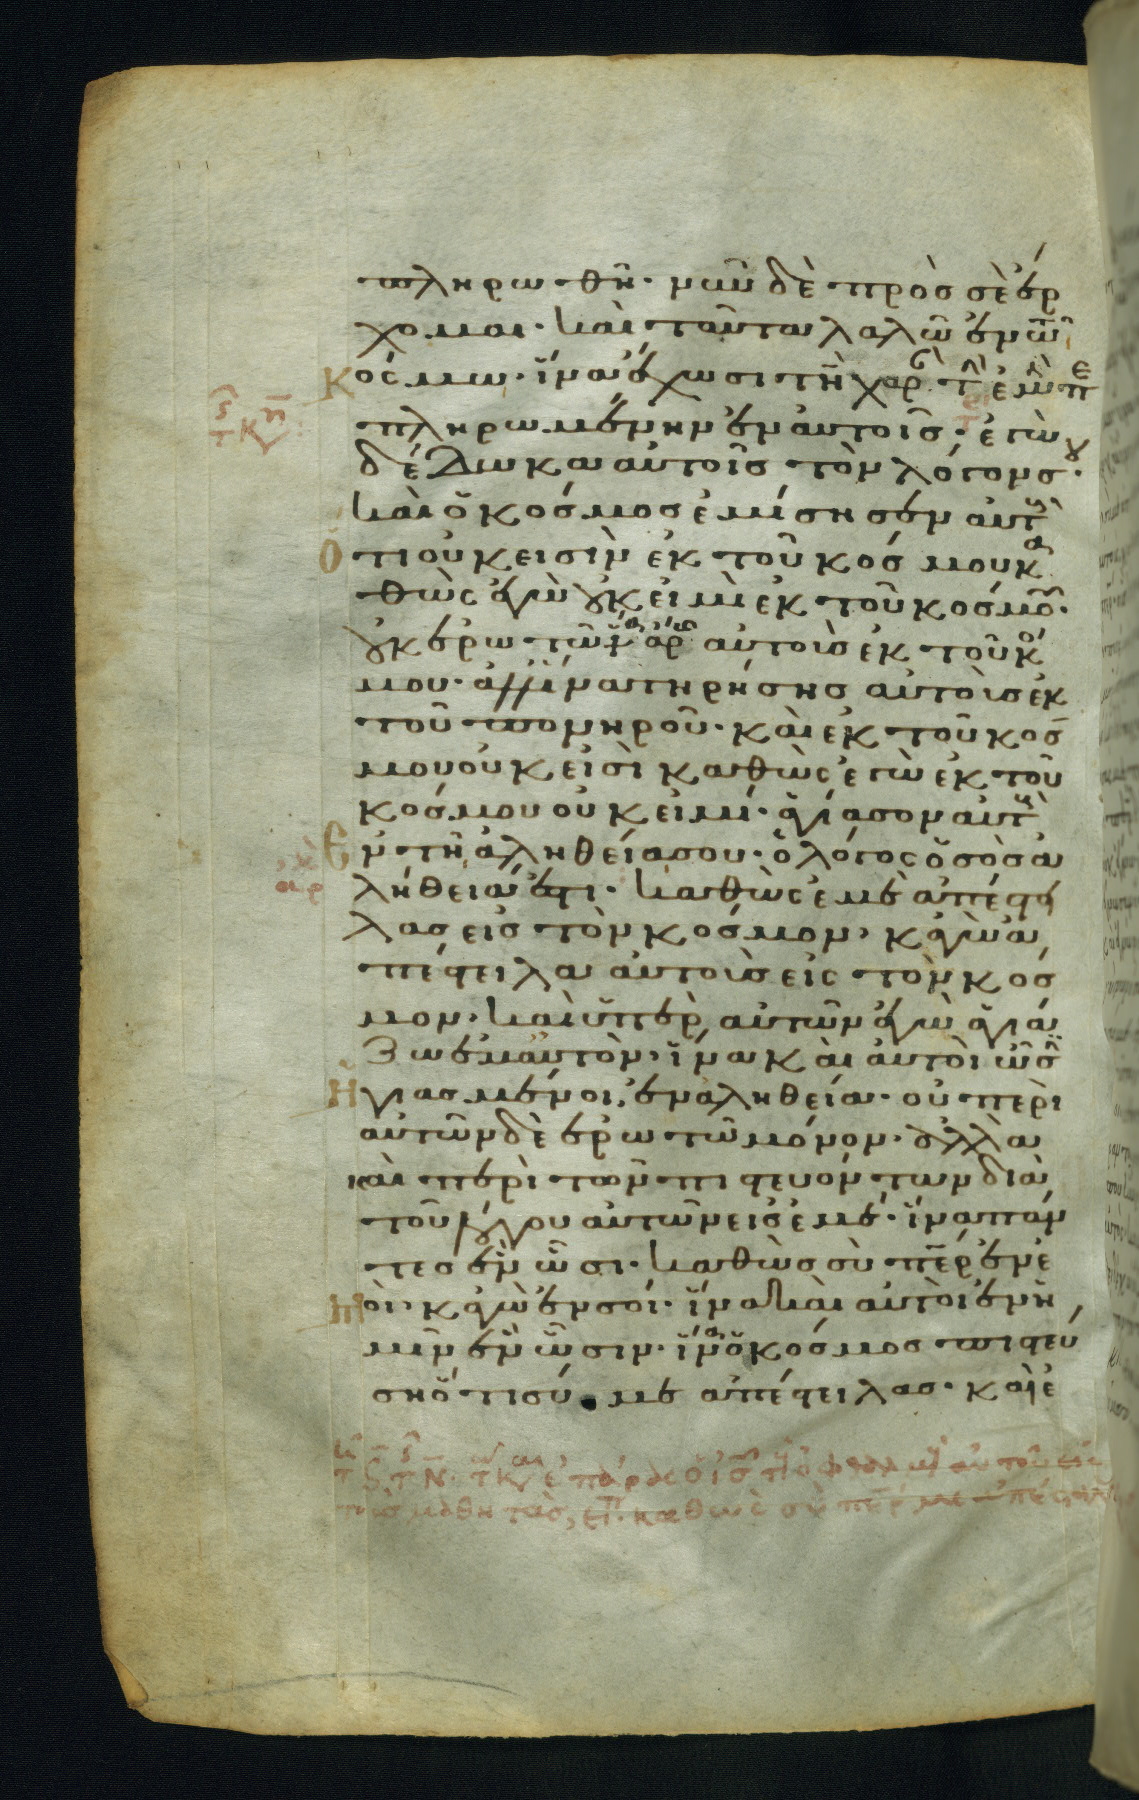 πληρωθῆ· νῦν δὲ πρὸς σὲ ἔρ
χομαι· καὶ ταῦτα λαλῶ ἐν τῶ
κόσμω· ἵνα ἔχωσι τὴν χαρ τὴν ἐμὴν πε
πληρωμένην ἐν αὐτοῖς· ἐγὼ
δέδωκα αὐτοῖς τὸν λόγον σου·
καὶ ὁ κόσμος ἐμίσησεν αὐτοὺς
ὅτι οὐκ εἰσὶν ἐκ τοῦ κόσμου κα
θὼς ἐγὼ οὐκ εἰμὶ ἐκ τοῦ κόσμου·
οὐκ ἐρωτῶ ἵνα ἄρης αὐτοὺς ἐκ τοῦ κό
μου· ἀλλ' ἵνα τηρήσης αὐτοὺς ἐκ
τοῦ πονηροῦ· καὶ ἐκ τοῦ κοσ
μου οὐκ εἰσὶ καθὼς ἐγὼ ἐκ τοῦ
κόσμου οὐκ εἰμί· ἁγίασον αὐτοὺς
ἐν τῆ ἀληθεία σου· ὁ λόγος ὁ σὸς ἀ
λήθειά ἐστι· καθὼς ἐμὲ ἀπέστει
λας εἰς τὸν κόσμον· κἀγὼ ἀ
πέστειλα αὐτοὺς εἰς τὸν κόσ
μον· καὶ ὑπὲρ αὐτῶν ἐγὼ ἁγιά
ζω ἐμαυτόν· ἵνα καὶ αὐτοὶ ὦσιν
ἡγιασμένοι ἐν ἀληθεία· οὐ περὶ
αὐτῶν δὲ ἐρωτῶ μόνον· ἀλλὰ
καὶ περὶ τῶν πιστευόντων διὰ
τοῦ λόγου αὐτῶν εἰς ἐμέ· ἵνα πάν
τες ἓν ὦσι· καθὼς σὺ περ ἐν ἐ
μοὶ· κἀγὼ ἐν σοί· ἵνα καὶ αὐτοὶ ἐν ἡ
μῖν ἓν ὦσιν· ἵνα ὁ κόσμος πιστεύ
ση ὅτι σύ με ἀπέστειλας· καὶ ἐ
ἐπάρας ὁ ις τοὺς ὀφθαλμοὺς αὐτοῦ εἰς
τοὺς μαθητάς, εἶπ· καθὼς σὺ περ με ἀπέστειλας